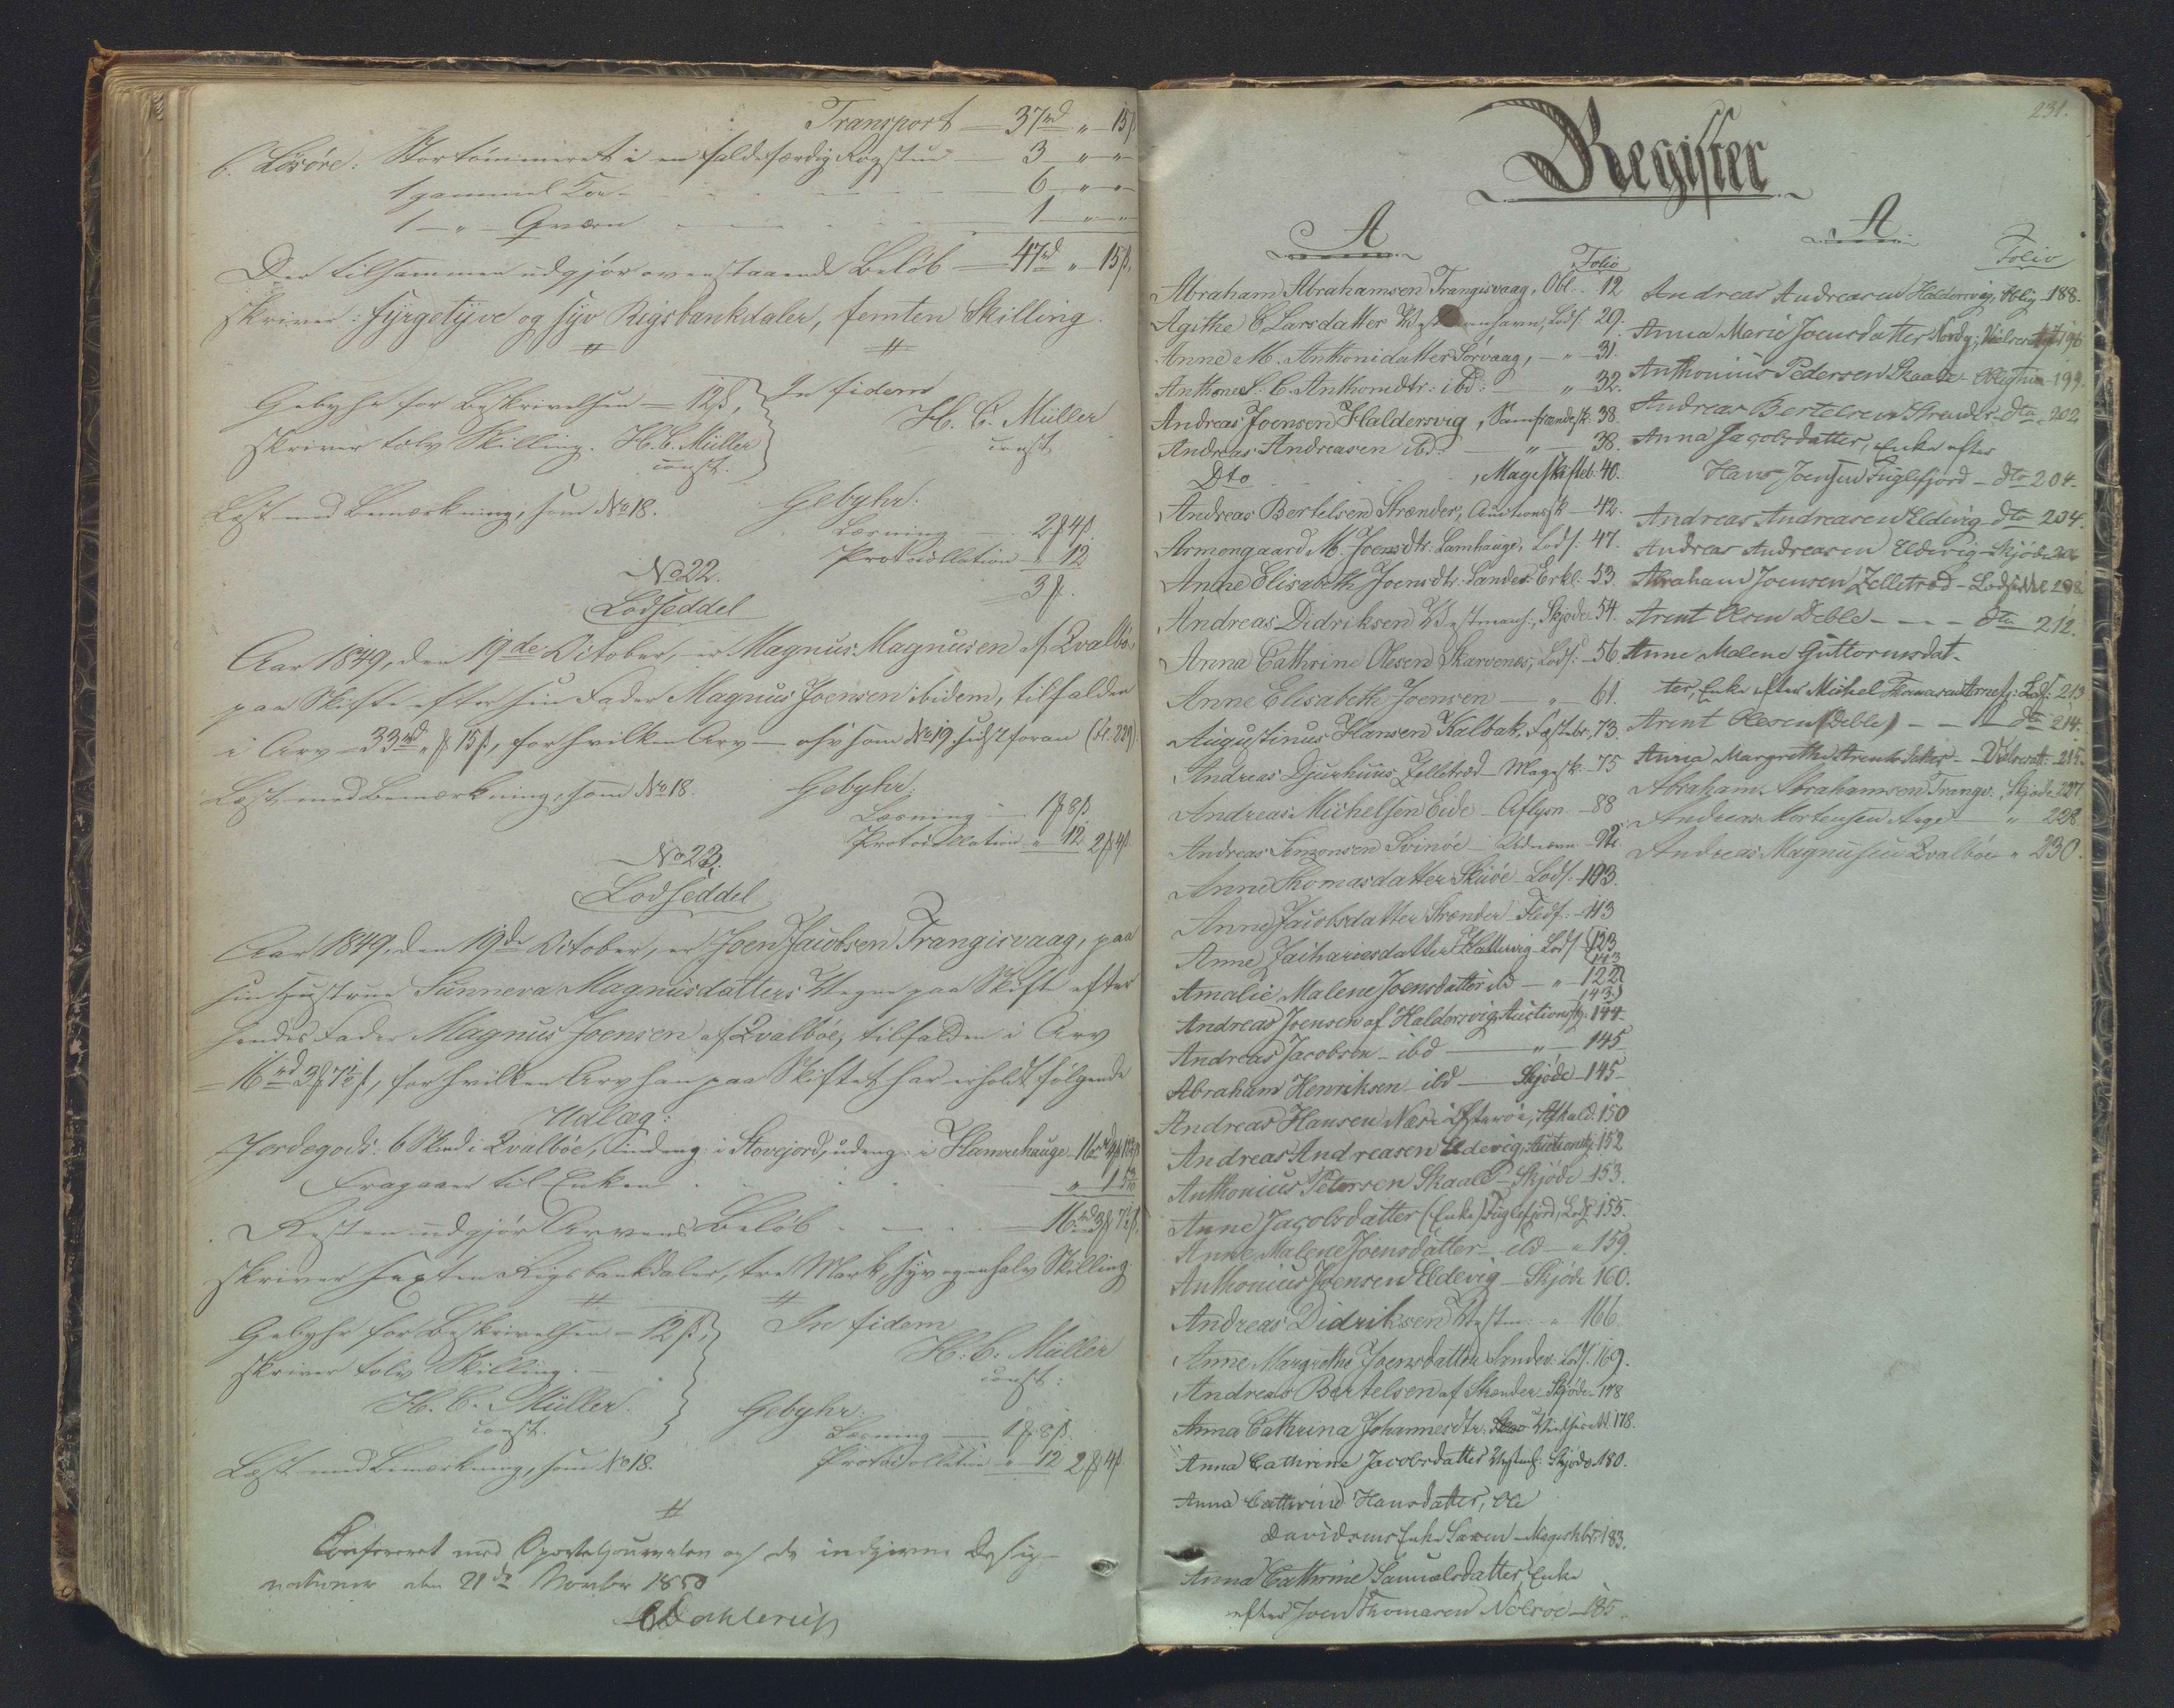 Transport — 37rd „ — 15ß
b. Løsøre: Stortømmeret i en faldefærdig Røgstue — 3 „ „
1 gammel Koe — 6 „ „
1 — „ — Qværn — 1 „ „
Der tilsammen udgjør ovenstaaende Beløb — 47rd „ 15ß,
skriver: fyrgetyve og syv Rigsbankdaler, femten Skilling.
Gebyhr for Beskrivelsen = 12ß, In fidem
skriver tolv Skilling. H. C. Müller H. C. Müller
const. const
Læst med Bemærkning, som No 18. Gebyhr:
Læsning — 2 4ß.
Protocollation „ 12
3
No 22.
Lodseddel
Aar 1849, den 19de October, er Magnus Magnusen af Qvalbøe
paa Skifte efter sin Fader Magnus Joensen ibidem, tilfalden
i Arv = 33rd „ 15ß, for hvilken Arv — osv som No 19 foran (Fol. 229)
Læst med Bemærkning, som No 18. Gebyhr:
Læsning — 1 8ß
Protocollation „ 12 2 4ß
No 23.
Lodseddel
Aar 1849, den 19de October, er Joen Jacobsen Trangisvaag, paa
sin Hustrue Sunneva Magnusdatters Vegne paa Skifte efter
hendes Fader Magnus Joensen af Qvalbøe, tilfalden i Arv
= 16rd 3 7½ß, for hvilken Arv han paa Skiftet har erholdt følgende
Udlæg:
Jordegods: 6 Skind i Qvalbøe, indeng: i Stovejord, udeng: i Hamrehauge
Fragaaer til Enken
Resten udgjør Arvens Beløb — 16rd 3 7½ß,
skriver sexten Rigsbankdaler, tre Mark, syv og en halv Skilling
Gebyhr for Beskrivelsen = 12ß, In fidem
skriver tolv Skilling. — H. C. Müller
H. C. Müller. const:
const. Gebyhr:
Læsning — 1 8ß.
Læst med Bemærkning, som No 18. Protocollation „ 12 2 4ß
Confereret med Sporteljournalen og de indgivne Desig-
nationer den 21de November 1850
CDahlerup
231.
Register
A
Folio
Abraham Abrahamsen Trangisvaag, Obl. - 12
Agithe C Larsdatter Lods. 29.
Anne M. Anthonidatter Sørvaag, — „ — 31.
C. Anthonidtr: ibd: „ 32.
Andreas Joensen Haldersvig, Samfrændesk. 38.
Andreas Andreasen ibd: — „ — 38.
Dto , Mageskifteb. 40.
Andreas Bertelsen Strænder, Auctionssk — 42.
Armongaard M. Joensdtr. Lamhauge, Lods. 47.
Anne Elisabeth Joensdtr. Sandes: Erkl. 53.
Andreas Didriksen Vestmanh:, Skjøde 54.
Anna Cathrine Olesen Skarvenes, Lods: — 56
Anne Elisabeth Joensen — „ — 61.
Augustinus Hansen Kalbak, Fæstebr, 73.
Andreas Djurhuus Zelletræd — Magesk. — 75
Andreas Michelsen Eide — Aflysn — 88
Andreas Simonsen Svinøe — Udnævn. — 92.
Anne Thomasdatter Skuøe — Lods. — 103.
Anne Jacobsdatter Strænder Fledf: — 113
Anne Zachariesdatter Hattervig Lods — 123
143
Amalie Malene Joensdatter ibd — „ — 122
(143)
Andreas Joensen af Haldersvig Auctionssk: 144
Andreas Jacobsen — ibd — „ — 145
Abraham Henriksen — ibd — Skjøde — 145
Andreas Hansen Næs i Østerøe, Afkald. 150
Andreas Andreasen Eldevig, Auctionssk. 152
Anthonius Petersen Skaale — Skjøde — 153.
Anne Jacobsdatter (Enke) Fuglefjord, Lods. 155.
Anne Malene Joensdatter — ibd — „ 159.
Anthonius Joensen Eldevig — Skjøde 160.
Andreas Didriksen Vestm: „ 166.
Anne Margrethe Joensdatter Sandes: Lods. 169.
Andreas Bertelsen af Strænder — Skjøde — 178
Anna Cathrina Johannesdtr. 178.
Anna Cathrine Jacobsdatter Vestmh: Skjøde 180.
Anna Cathrine Hansdatter, Ole
Davidsens Enke — Mageskbr: 183.
Anna Cathrine Samuelsdatter, Enke
efter Joen Thomasen Nolsøe — 185.
A
Folio
Andreas Andreasen Haldersvig, Oblig — 188.
Anna Marie Joensdatter 196
Anthonius Pedersen Skaale — Obligtion 199.
Andreas Bertelsen Strænder — dto 202
Anna Jacobsdatter, Enke efter
Hans Joensen Fuglefjord — dto 204.
Andreas Andreasen Eldevig dto 204.
Andreas Andreasen Eldevig — Skjøde 206
Abraham Joensen Zelletræd — Lodseddel 208
Arent Olsen Deble — — — dto 212.
Anne Malene Guttormsdat-
ter, Enke efter Michel Thomasen Lods: 213
Arent Olesen (Deble) — — — dto 214.
Anna Margrethe Arentsdatter — 215.
Abraham Abrahamsen Trangv: , Skjøde 227
Andreas Mortensen „ 228
Andreas Magnusen Qvalbøe „ 230.